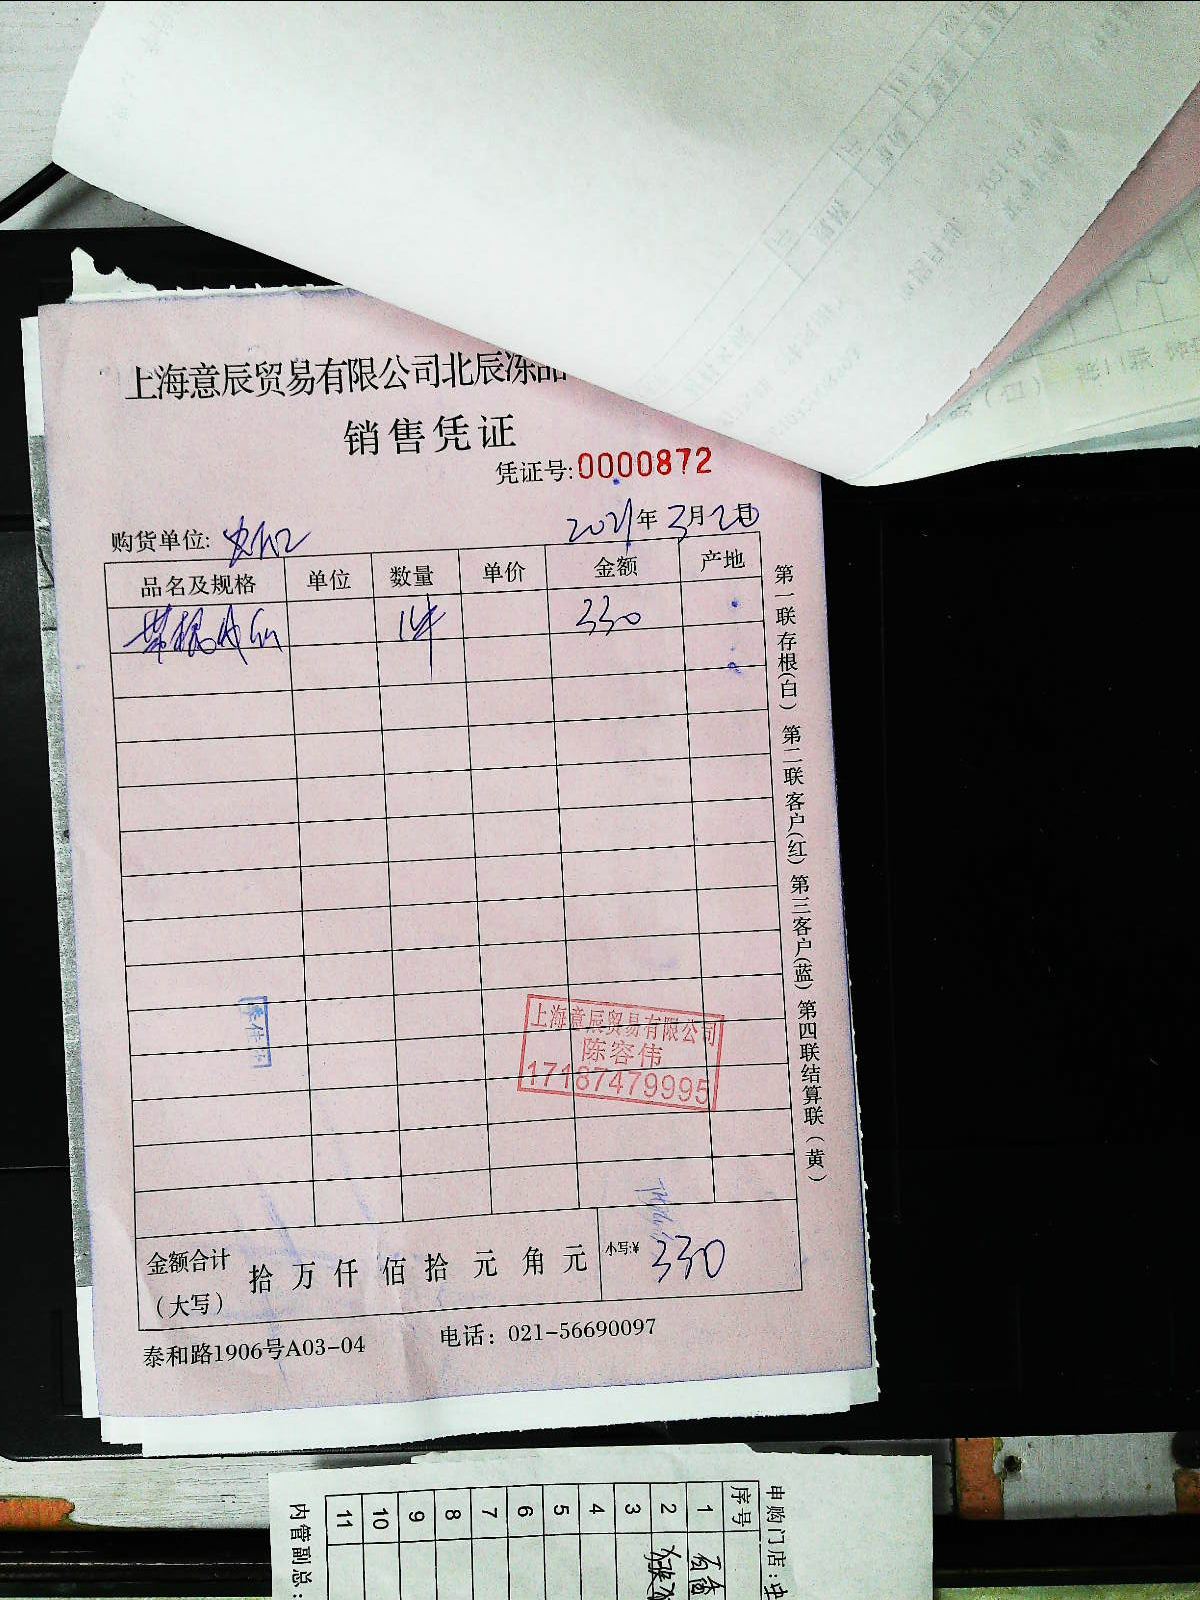 上海意辰贸易有限公司北辰冻品
销售凭证
凭证号:0000872
购货单位:
2021年3月20日
品名及规格 单位 数量 单价 金额 产地
带根 1件 330
第一联存根(白) 第二联客户(红) 第三客户(蓝) 第四联结算联(黄)
上海意辰贸易有限公司
陈容伟
17187479995
金额合计
(大写)
拾 万 仟 佰 拾 元 角 元
小写:¥ 330
泰和路1906号A03-04 电话：021-56690097
申购门店:
序号 1 2 3 4 5 6 7 8 9 10 11
内管副总: